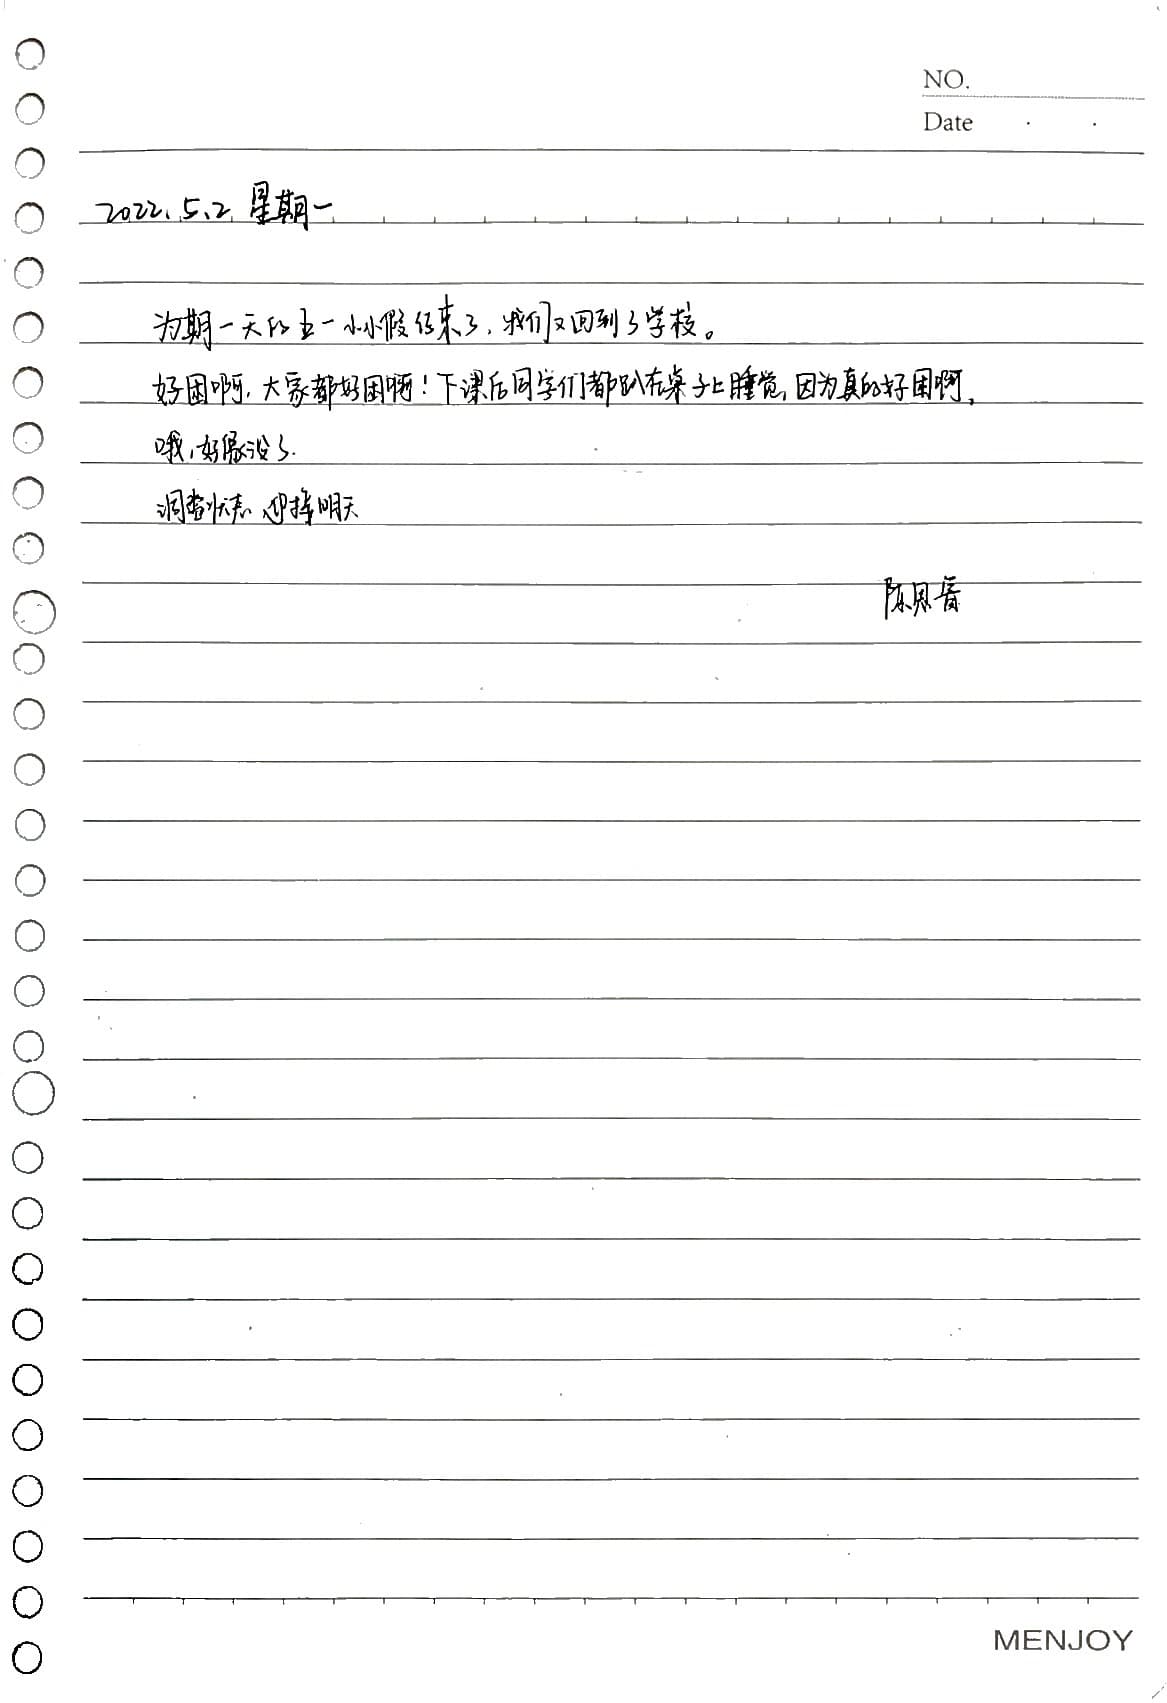 NO.
Date
2022.5.2 星期一
为期一天的五一小小假结束了，我们又回到了学校。
好困啊，大家都好困啊！下课后同学们都趴在桌子上睡觉，因为真的好困啊，
哦，好像没了.
调整状态 迎接明天
陈思
MENJOY